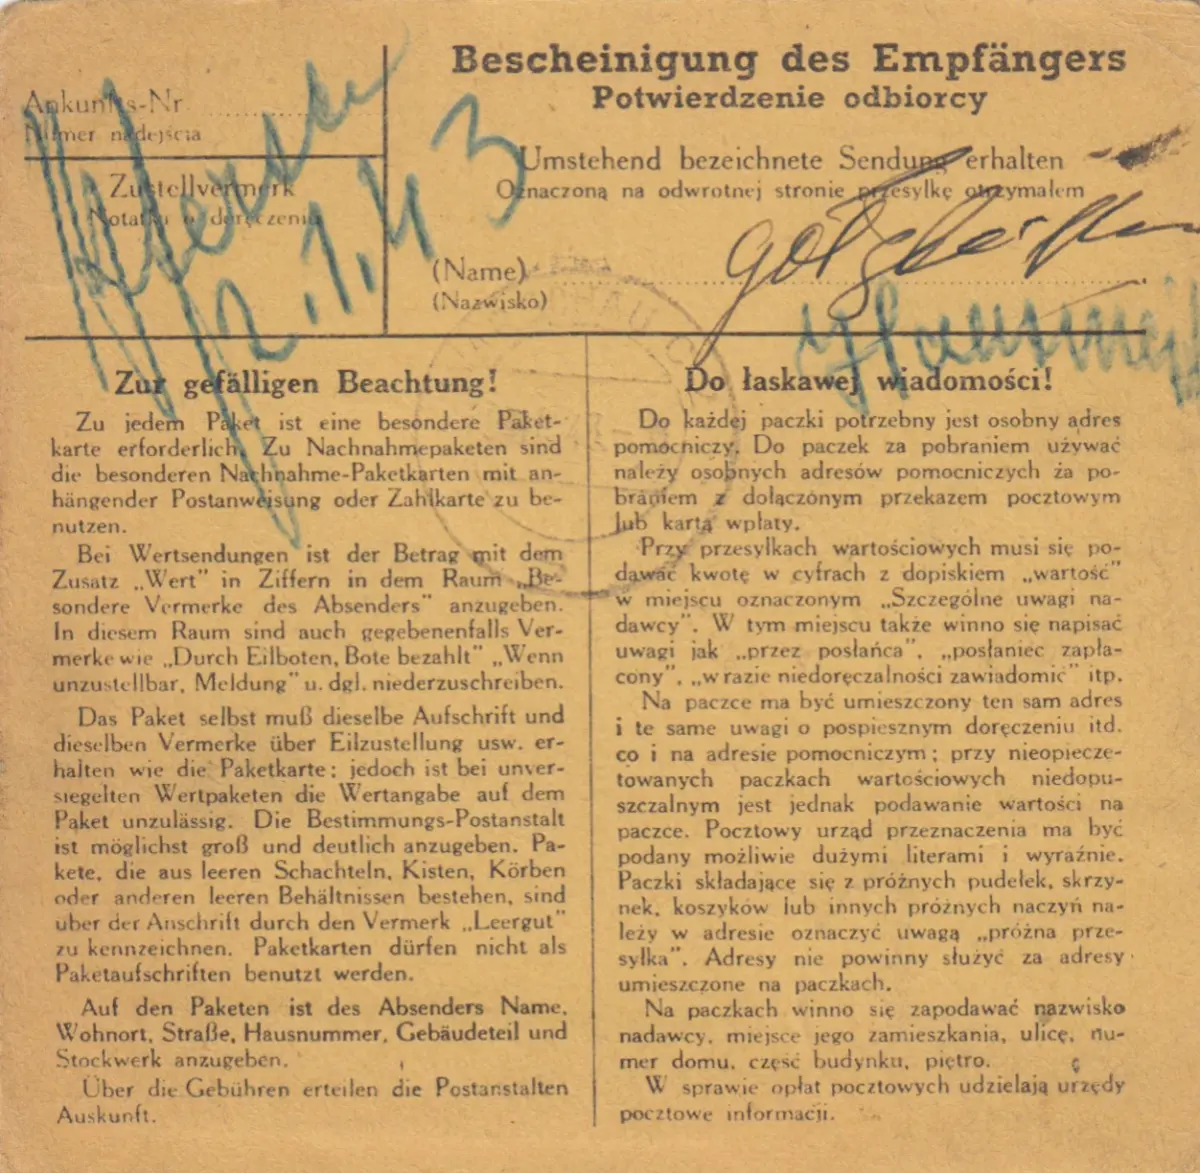 Bescheinigung des Empfängers
Potwierdzenie odbiorcy
Ankunfts-Nr.
Numer nadejścia
Zustellvermerk
Notatka o doręczeniu
Umstehend bezeichnete Sendung erhalten
Oznaczoną na odwrotnej stronie przesyłkę otrzymałem
(Name)
(Nazwisko)
Zur gefälligen Beachtung!
Zu jedem Paket ist eine besondere Paket-
karte erforderlich. Zu Nachnahmepaketen sind
die besonderen Nachnahme-Paketkarten mit an-
hängender Postanweisung oder Zahlkarte zu be-
nutzen.
Bei Wertsendungen ist der Betrag mit dem
Zusatz „Wert" in Ziffern in dem Raum „Be-
sondere Vermerke des Absenders" anzugeben.
In diesem Raum sind auch gegebenenfalls Ver-
merke wie „Durch Eilboten, Bote bezahlt" „Wenn
unzustellbar, Meldung" u. dgl. niederzuschreiben.
Das Paket selbst muß dieselbe Aufschrift und
dieselben Vermerke über Eilzustellung usw. er-
halten wie die Paketkarte; jedoch ist bei unver-
siegelten Wertpaketen die Wertangabe auf dem
Paket unzulässig. Die Bestimmungs-Postanstalt
ist möglichst groß und deutlich anzugeben. Pa-
kete, die aus leeren Schachteln, Kisten, Körben
oder anderen leeren Behältnissen bestehen, sind
über der Anschrift durch den Vermerk „Leergut"
zu kennzeichnen. Paketkarten dürfen nicht als
Paketaufschriften benutzt werden.
Auf den Paketen ist des Absenders Name,
Wohnort, Straße, Hausnummer, Gebäudeteil und
Stockwerk anzugeben.
Über die Gebühren erteilen die Postanstalten
Auskunft.
Do łaskawej wiadomości!
Do każdej paczki potrzebny jest osobny adres
pomocniczy. Do paczek za pobraniem używać
należy osobnych adresów pomocniczych ża po-
braniem z dołączonym przekazem pocztowym
lub kartą wpłaty.
Przy przesyłkach wartościowych musi się po-
dawać kwotę w cyfrach z dopiskiem „wartość"
w miejscu oznaczonym „Szczególne uwagi na-
dawcy". W tym miejscu także winno się napisać
uwagi jak „przez posłańca", „posłaniec zapła-
cony", „w razie niedoręczalności zawiadomić" itp.
Na paczce ma być umieszczony ten sam adres
i te same uwagi o pospiesznym doręczeniu itd.
co i na adresie pomocniczym; przy nieopieczę-
towanych paczkach wartościowych niedopu-
szczalnym jest jednak podawanie wartości na
paczce. Pocztowy urząd przeznaczenia ma być
podany możliwie dużymi literami i wyraźnie.
Paczki składające się z próżnych pudełek, skrzy-
nek, koszyków lub innych próżnych naczyń na-
leży w adresie oznaczyć uwagą „próżna prze-
syłka". Adresy nie powinny służyć za adresy
umieszczone na paczkach.
Na paczkach winno się zapodawać nazwisko
nadawcy, miejsce jego zamieszkania, ulicę, nu-
mer domu, część budynku, piętro.
W sprawie opłat pocztowych udzielają urzędy
pocztowe informacji.